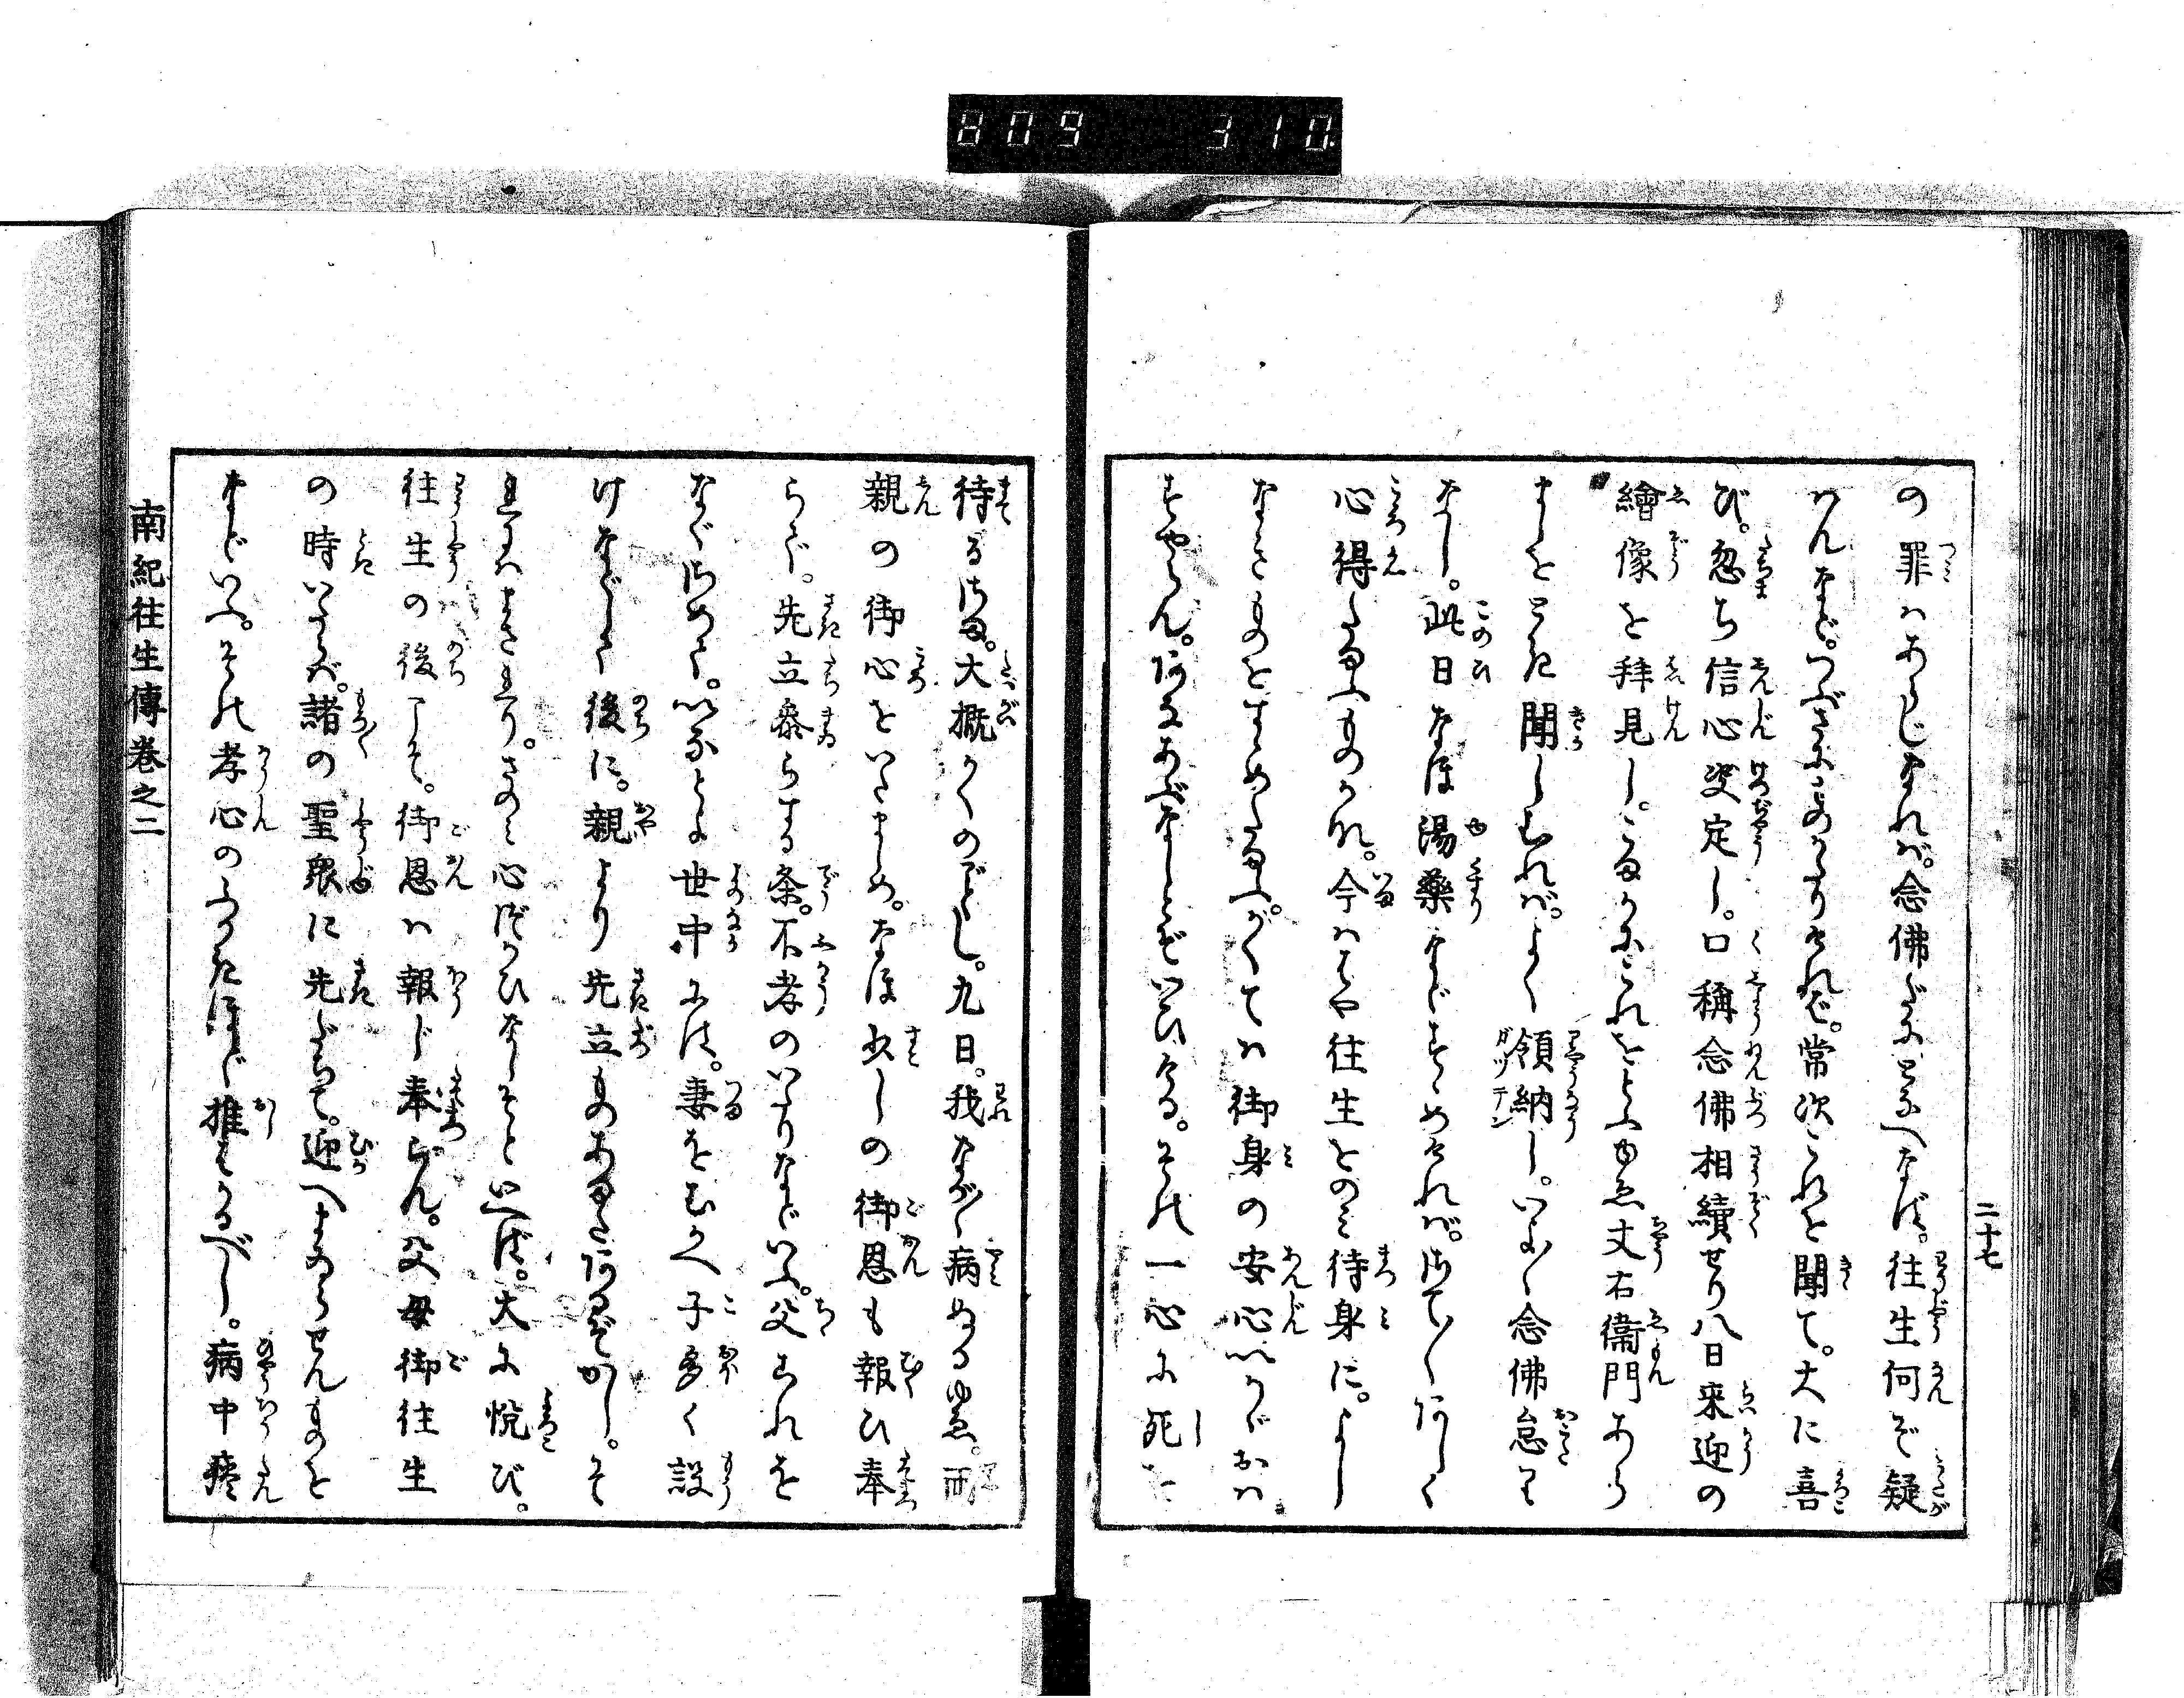 809 310
二十七
の罪はあらじなれば。念佛だにとなへなば。往生何ぞ疑
はんなど。つぶさにものがたりければ。常次これを聞て。大に喜
び。忽ち信心决定し。口稱念佛相續せり八日来迎の
繪像を拝見し。こまかにこれをとふゆゑ丈右衞門あら
ましをとき聞しむれば。よく領納し。いよ〱念佛怠り
なし。此日なほ湯藥などすゝめければ。さて〱あしく
心得たまふものかな。今ははや往生をのミ待身に。よし
なきものをすゝめたまふ。かくては御身の安心いかゞおハ
すやらん。あなあぶなしとぞいひける。それ一心に死を
待るさま。大概かくのごとし。九日。我ながく病ぬるゆゑ。両
親の御心をいためめ。なほ少しの御恩も報ひ奉
らず。先立参らする条。不孝のいたりなどいふ。父これを
なぐさめて。いなとよ世中には。妻をむかへ子多く設
けなどして後に。親より先立ものあまたあるぞかし。そ
れにハまされり。さのミ心づかひなしそといへば。大に悦び。
往生の後こそ。御恩ハ報じ奉らん。父母御往生
の時いたらば。諸の聖衆に先だちて。迎へまゐらせんものを
などいふ。それ孝心のふかきほど推はかるべし。病中痰
南紀往生傳巻之二